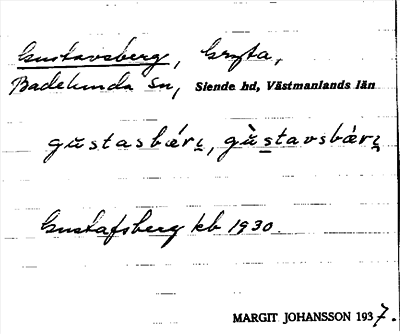 Gustavsberg, Gryta,
Badelunda sn, Siende hd, Västmanlands län
gustasbæri, gùstavsbæri
Gustafsberg kb 1930
MARGIT JOHANSSON 1937.